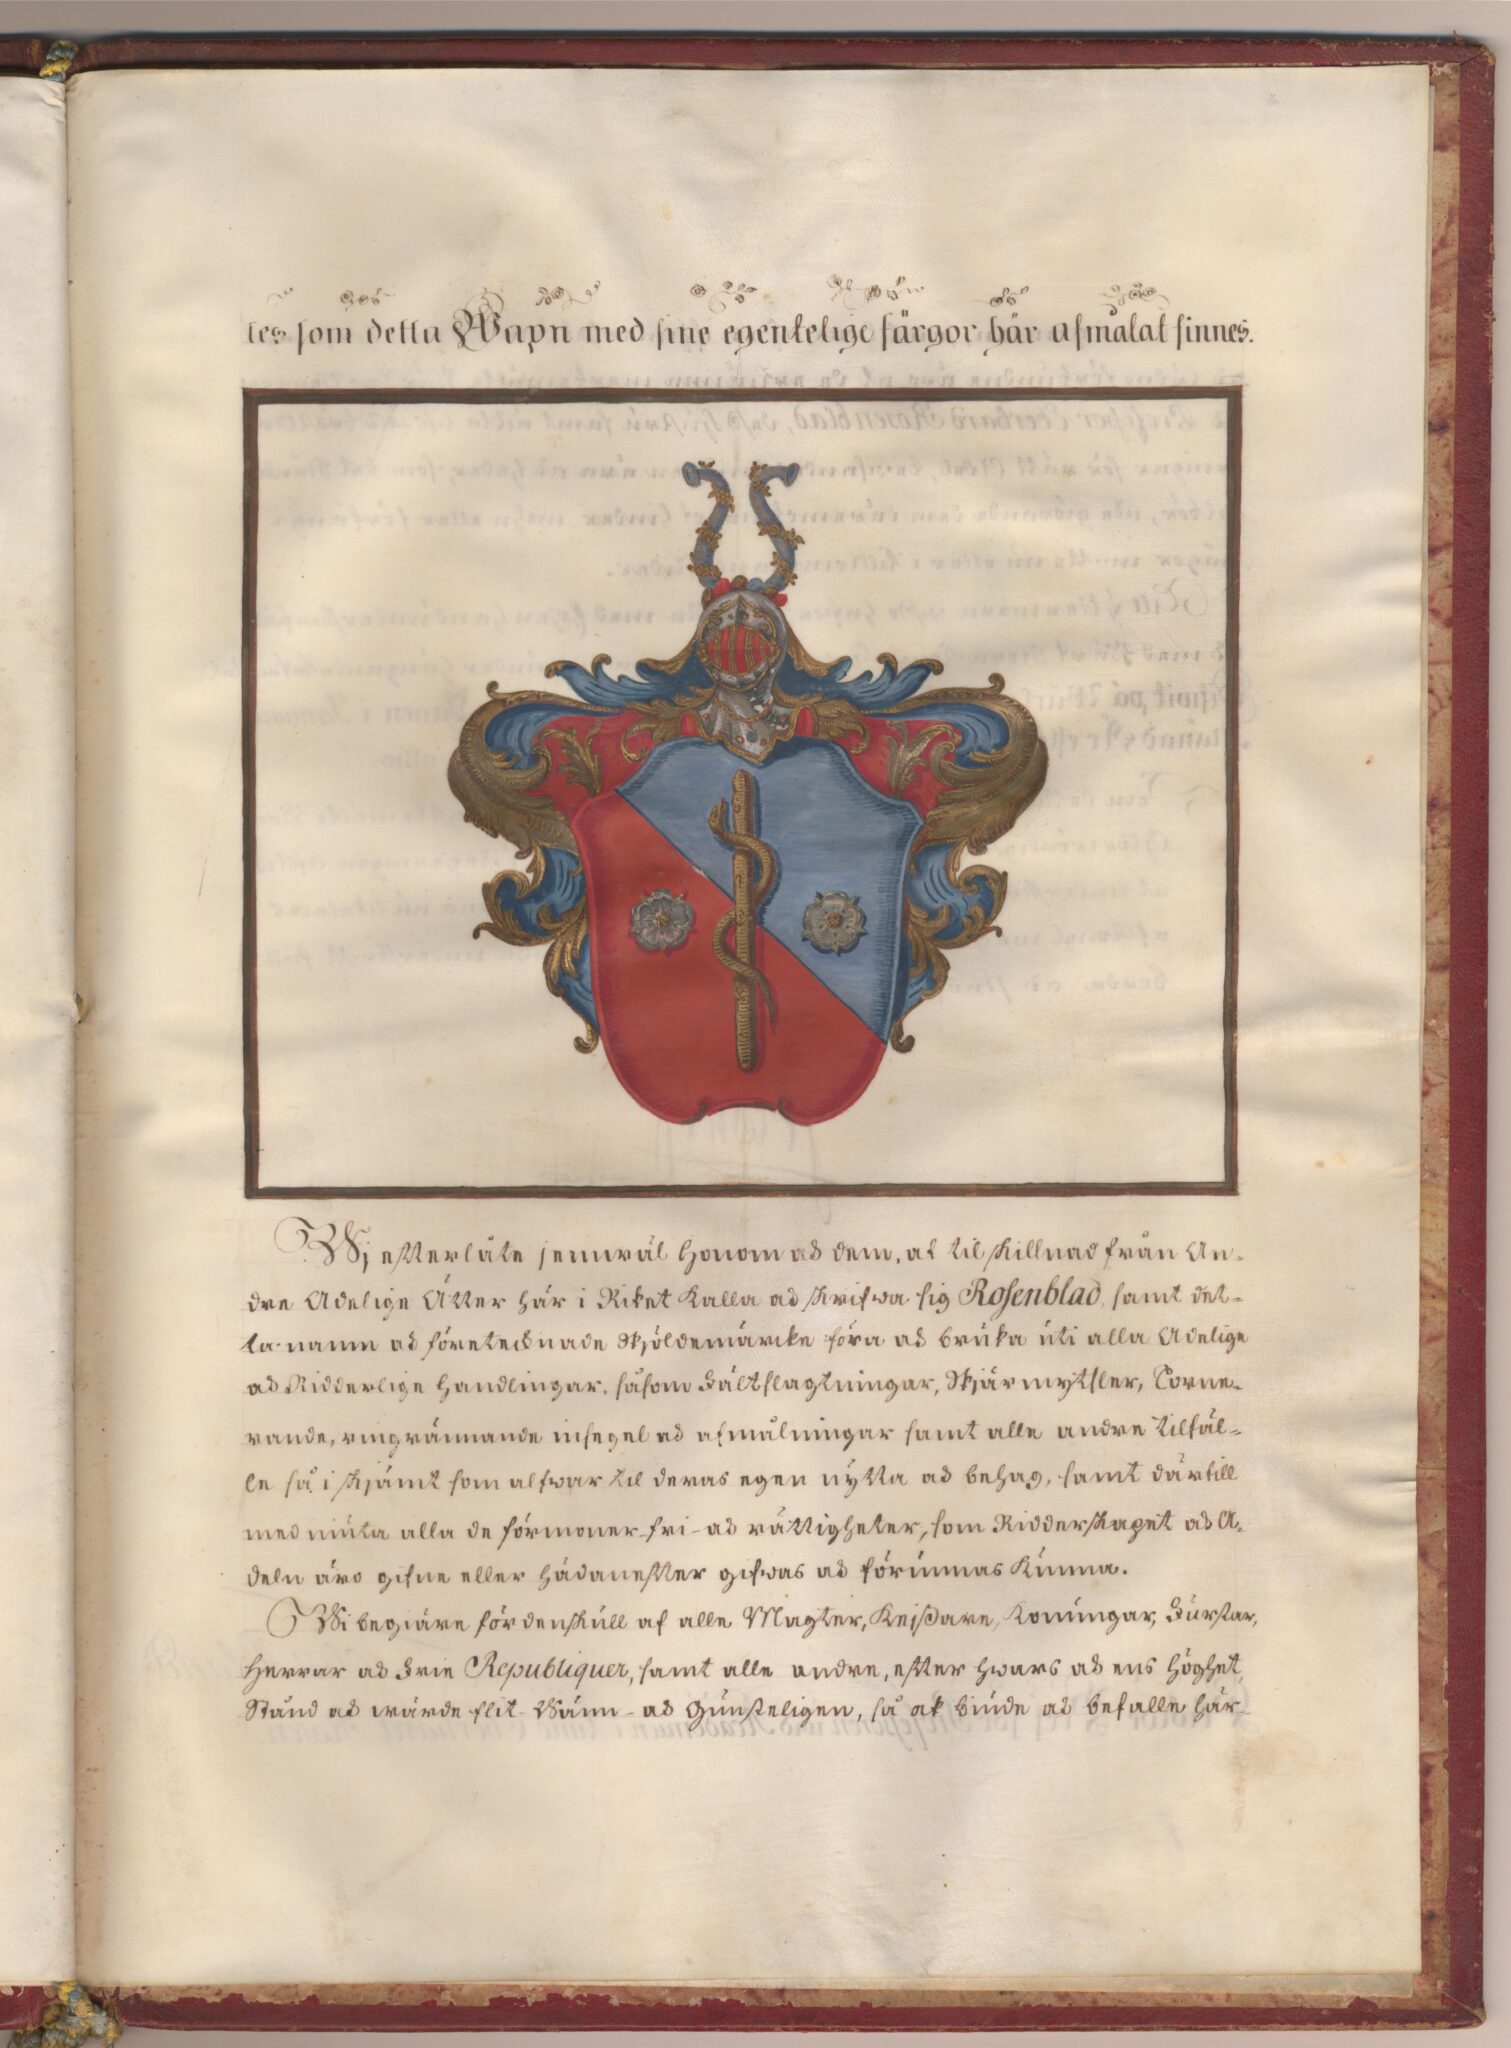 les som detta Wapn med sine egentelige färgor här afmålat finnes.
Wj efterlåte jemwäl honom och dem, at til skillnad från An-
dre Adelige Ätter här i Riket kalla och skrifwa sig Rosenblad, samt det-
ta namn och företecknade skjöldemärcke föra och brúka úti alla Adelige
och Ridderlige handlingar, såsom Fältslagtningar, Skjärmytsler, Torne-
rande, ringrännande insegel och afmålningar samt alle andre tilfäl-
le så i skjämt som alfwar til deras egen nytta och behag, samt därtill
med niúta alla de förmoner fri- och rättigheter, som Ridderskapet och A-
deln äro gifne eller hädanefter gifwas och förúnnas kúnna.
Wi begiäre fördenskúll af alle Magter, Kejsare, Konúngar, Fúrstar,
Herrar och Frie Republiquer, samt alle andre, efter hwars och ens höghet,
Stånd och wärde flit- Wänn- och Gúnsteligen, så ok biúde och befalle här